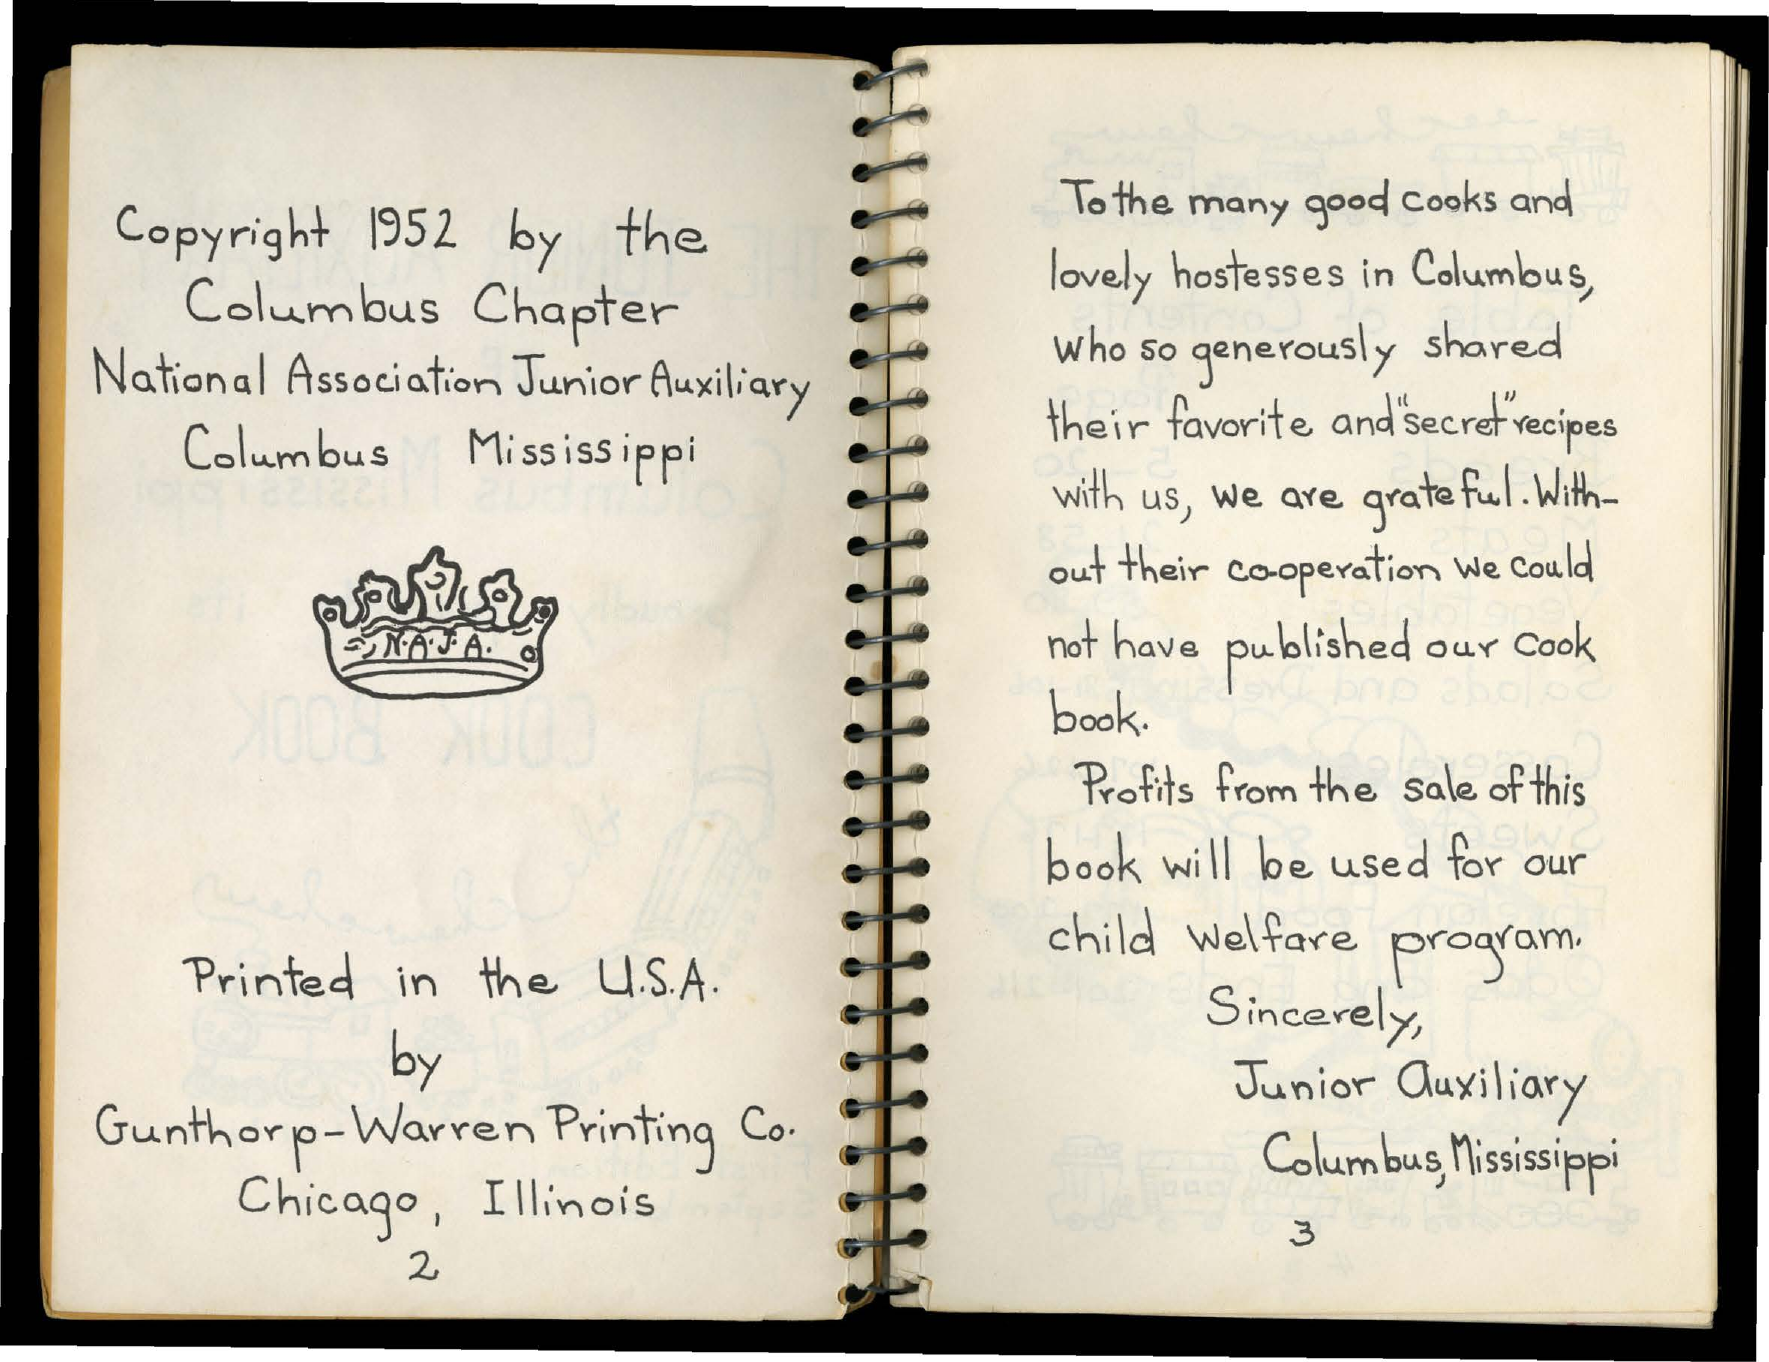 Copyright 1952 by the
Columbus Chapter
National Association Junior Auxiliary
Columbus Mississippi
N.A.J.A.
Printed in the U.S.A.
by
Gunthorp-Warren Printing Co.
Chicago, Illinois
2
To the many good cooks and
lovely hostesses in Columbus,
who so generously shared
their favorite and "secret" recipes
with us, we are grateful. With-
out their co-operation we could
not have published our cook
book.
Profits from the sale of this
book will be used for our
child welfare program.
Sincerely,
Junior Auxiliary
Columbus, Mississippi
3